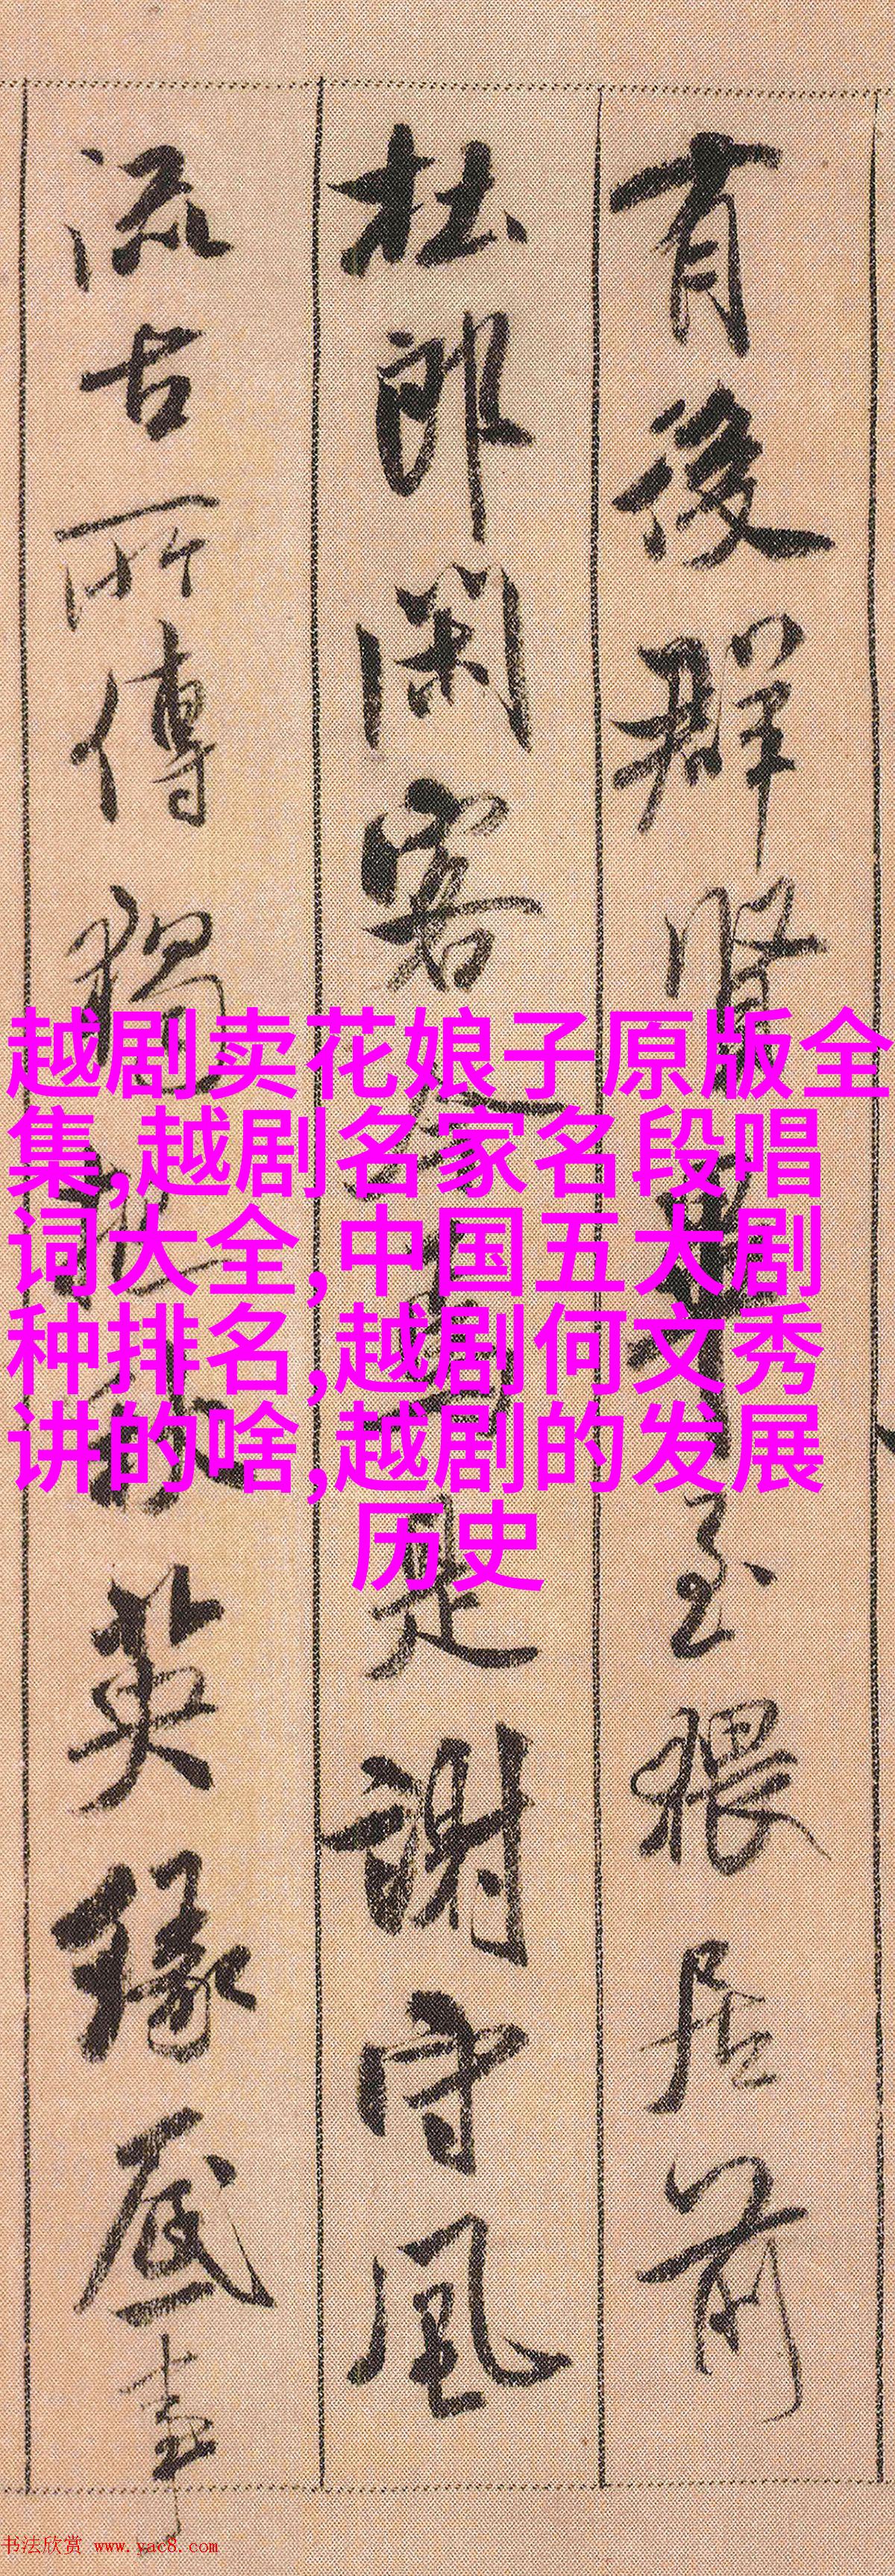 有後群賢畢至猥居前
杜郎閑客是謝守風
流古所傳獨把秋英緣底事
越剧卖花娘子原版全
集,越剧名家名段唱
词大全,中国五大剧
种排名,越剧何文秀
讲的啥,越剧的发展
历史
书法欣赏 www.yac8.com